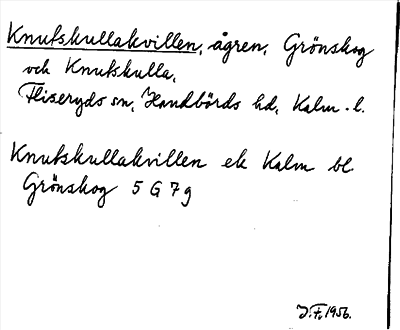 Knutskullakvillen, ägren, Grönskog
och Knutskulla,
Fliseryds sn, Handbörds hd, Kalm. l.
Knutskullakvillen ek Kalm bl
Grönskog 5 G 7 g
J.F. 1956.